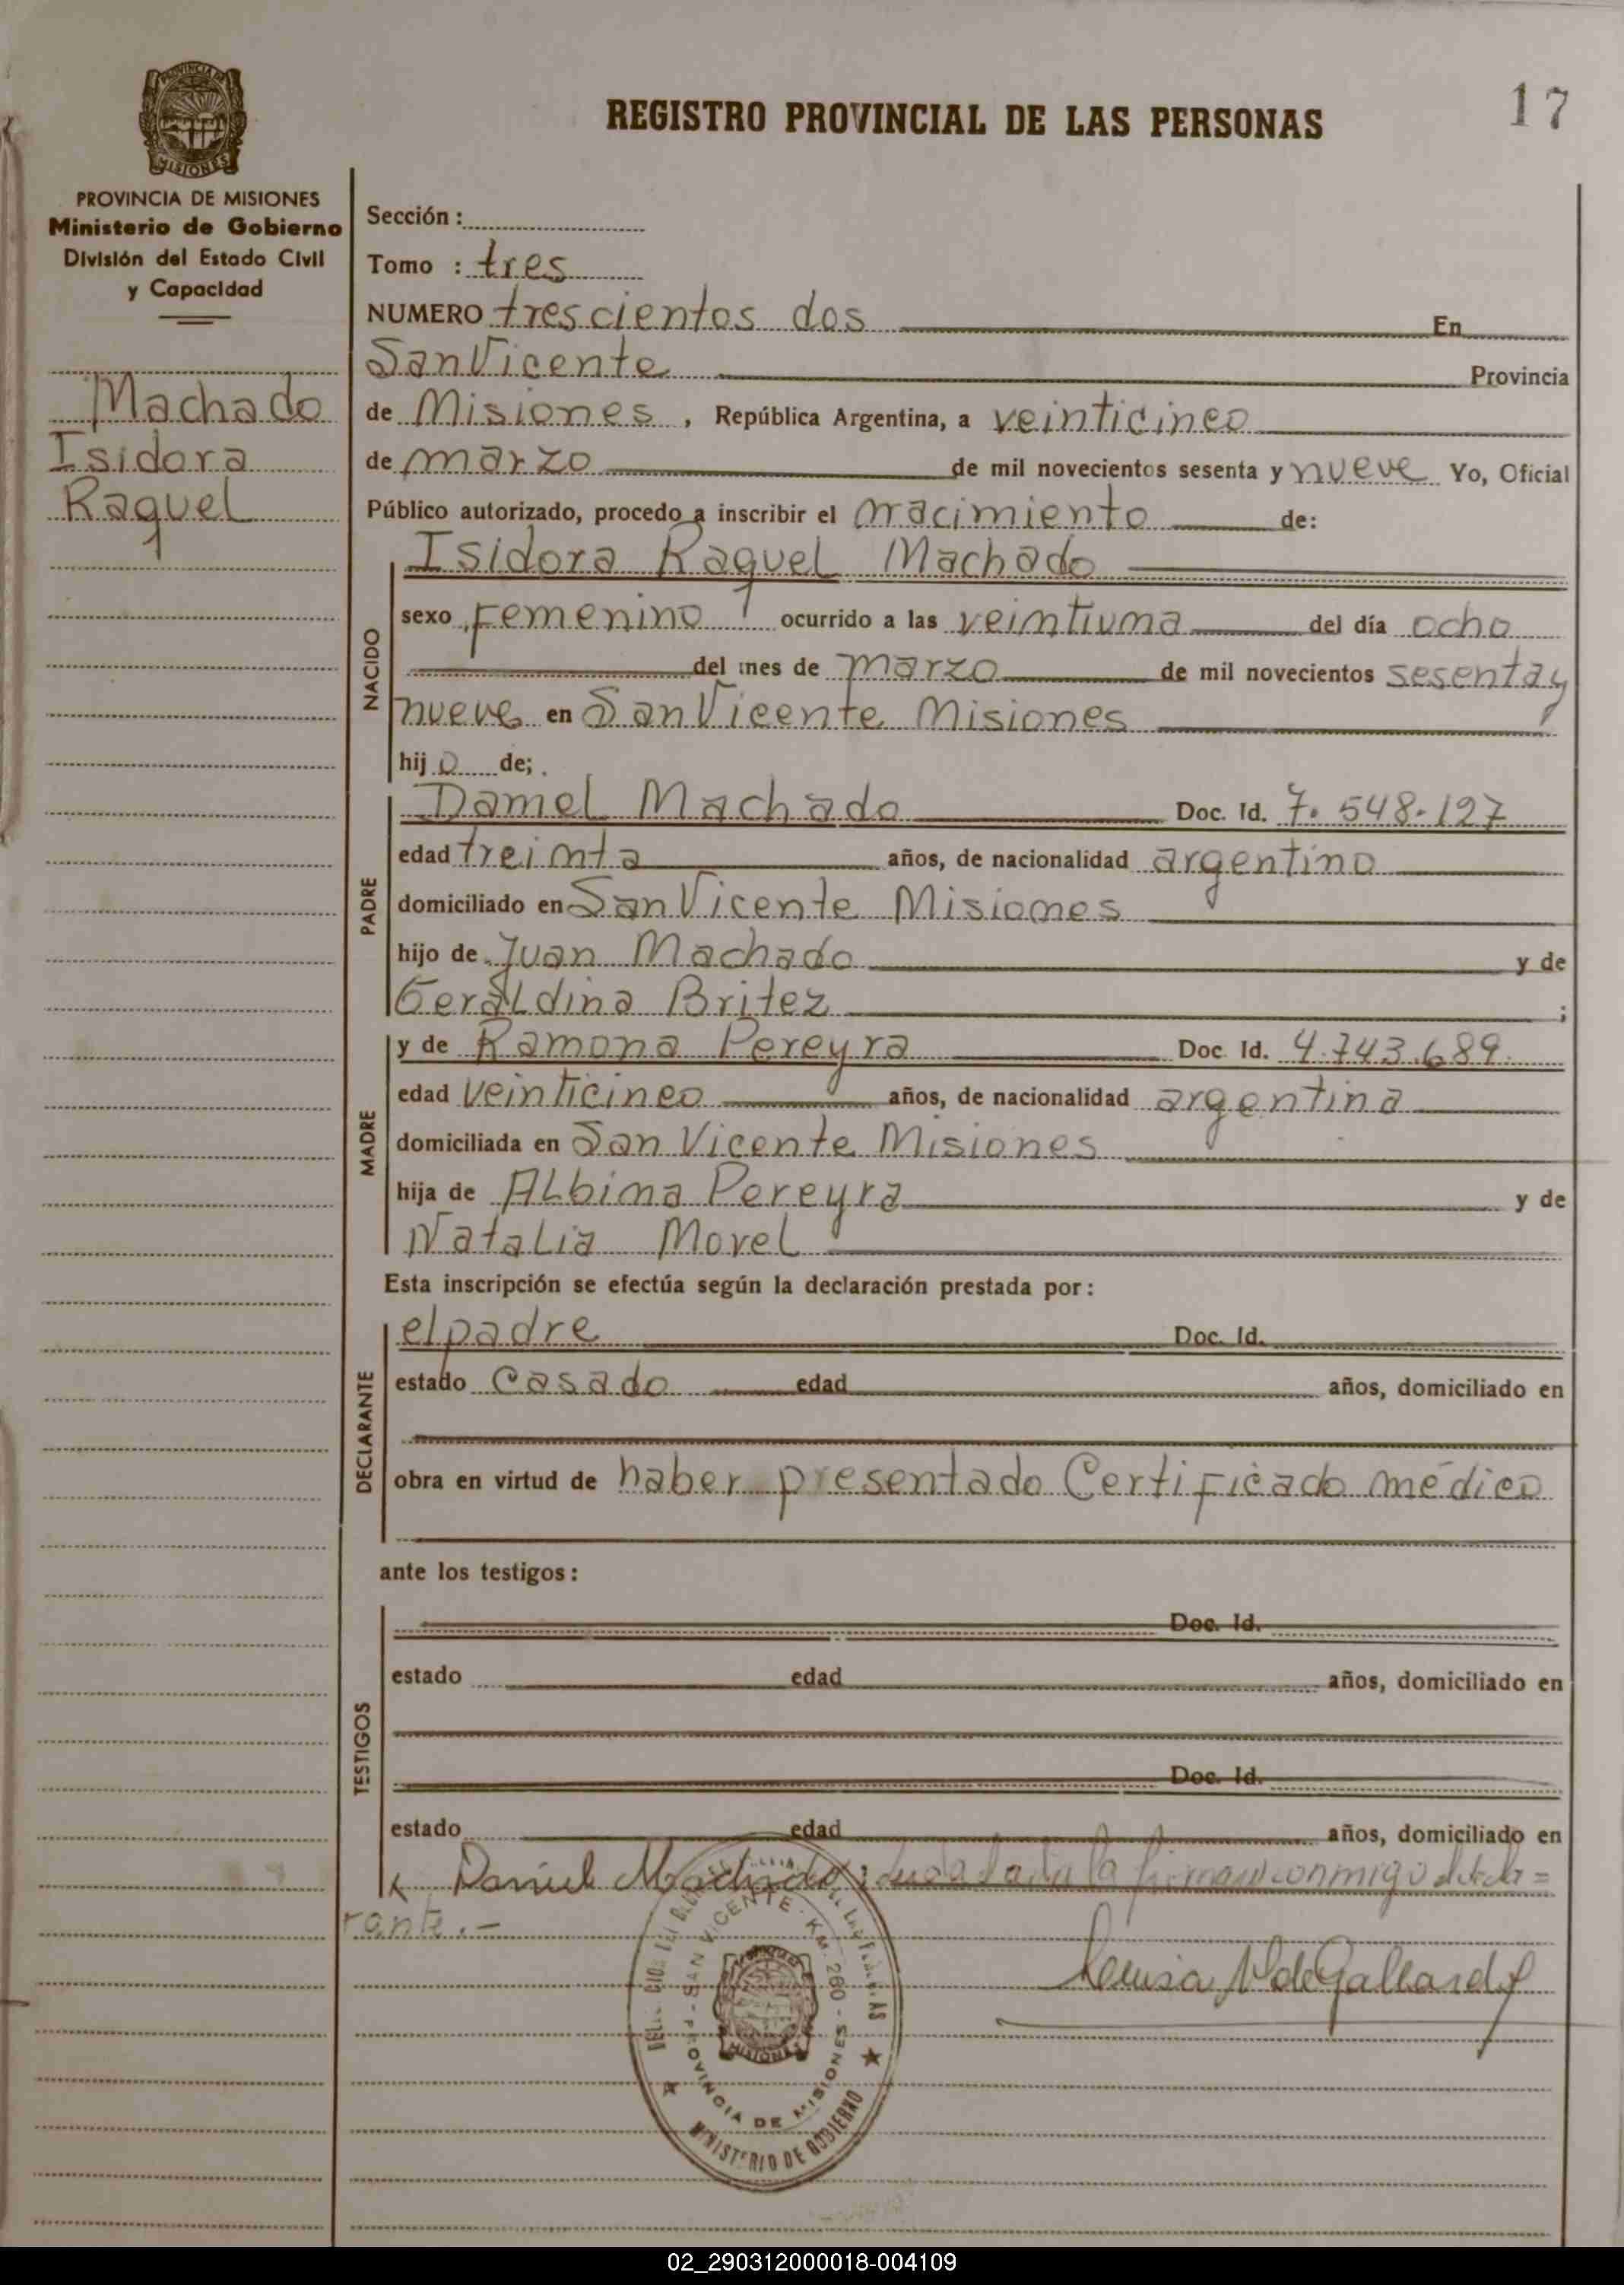 17
REGISTRO PROVINCIAL DE LAS PERSONAS
PROVINCIA DE MISIONES
MISIONES
PROVINCIA DE MISIONES
Ministerio de Gobierno
División del Estado Civil
y Capacidad
Machado
Isidora
Raquel
Sección :
Tomo : tres
NUMERO trescientos dos En
San Vicente Provincia
de Misiones , República Argentina, a veinticinco
de marzo de mil novecientos sesenta y nueve Yo, Oficial
Público autorizado, procedo a inscribir el nacimiento de:
NACIDO
Isidora Raquel Machado
sexo femenino ocurrido a las veintiuna del día ocho
del mes de marzo de mil novecientos sesenta y
nueve en San Vicente Misiones
hijo de;
PADRE
Daniel Machado Doc. Id. 7.548.127
edad treinta años, de nacionalidad argentino
domiciliado en San Vicente Misiones
hijo de Juan Machado y de
Geraldina Britez ;
MADRE
y de Ramona Pereyra Doc. Id. 4.743.689.
edad veinticinco años, de nacionalidad argentina
domiciliada en San Vicente Misiones
hija de Albina Pereyra y de
Natalia Morel
Esta inscripción se efectúa según la declaración prestada por :
DECLARANTE
el padre Doc. Id.
estado casado edad años, domiciliado en
obra en virtud de haber presentado Certificado médico
ante los testigos :
TESTIGOS
Doc. Id.
estado edad años, domiciliado en
Doc. Id.
estado edad años, domiciliado en
Daniel Machado la firman conmigo el decla=
rante.-
SAN VICENTE - KM. 260 -
PROVINCIA DE MISIONES
MISIONES
MINISTERIO DE GOBIERNO
Luisa N de Gallardo
02_290312000018-004109